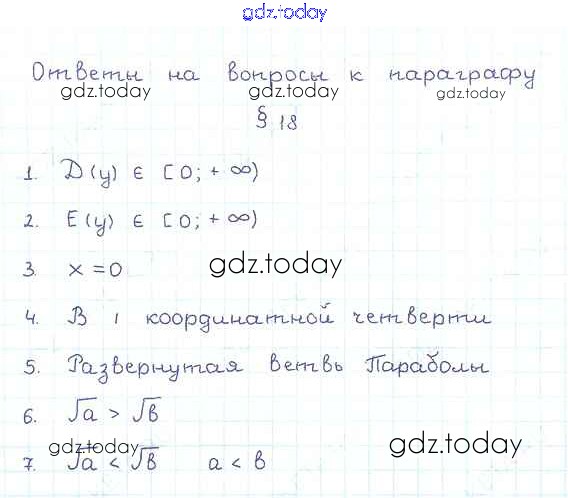 gdz.today
Ответы на вопросы к параграфу
gdz.today gdz.today gdz.today
§ 18
1. D(y) ∈ [0; +∞)
2. E(y) ∈ [0; +∞)
3. x = 0
gdz.today
4. В 1 координатной четверти
5. Развернутая ветвь Параболы
6. √a > √b
gdz.today gdz.today
7. √a < √b a < b